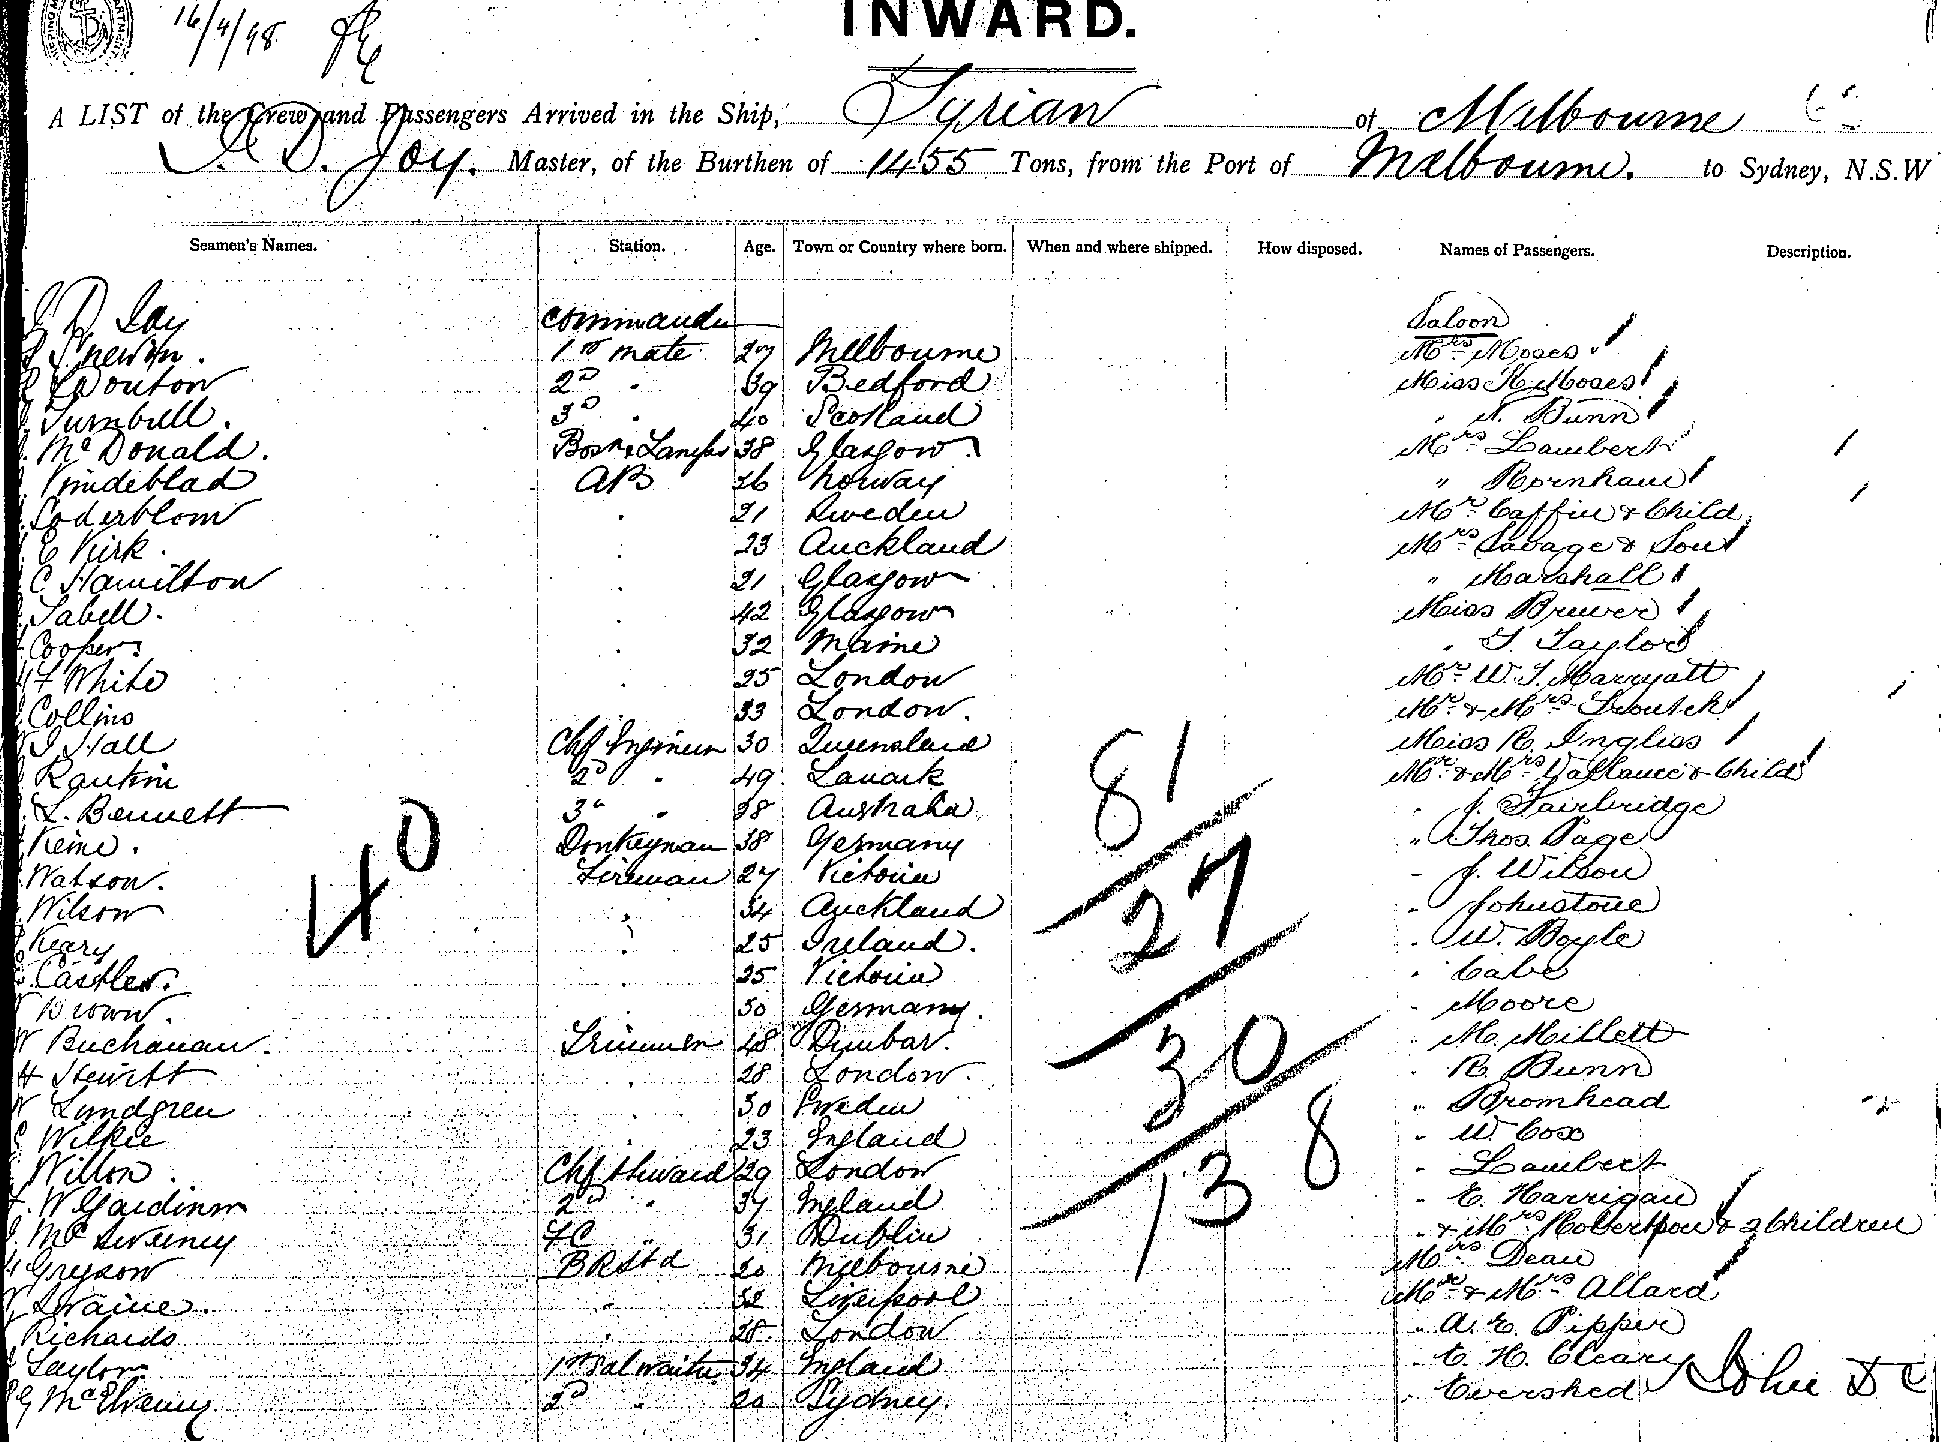 16/4/98
INWARD.
A LIST of the Crew and Passengers Arrived in the Ship, Syrian of Melbourne
J. D. Joy. Master, of the Burthen of 1455 Tons, from the Port of Melbourne. to Sydney, N.S.W
Seamen's Names. Station. Age. Town or Country where born. When and where shipped. How disposed. Names of Passengers. Description.
J D Joy Commander Saloon
1st mate 27 Melbourne Mrs Moses
Douton 2D " 39 Bedford Miss H Moses
Turnbull. 3D " 40 Scotland " N. Bunn
McDonald. Bosn & Lamps 38 Glasgow. Mrs Lambert
Vindeblad AB 26 Norway " Bornham
Soderblom " 21 Sweden Mr Caffin & Child
E Kirk. " 23 Auckland Mrs Savage & Son
C Hamilton " 21 Glasgow " Marshall
Sabell. " 42 Glasgow Miss Brewer
Cooper. " 32 Maine " T. Taylor
F White " 25 London Mr W. T. Marryatt
Collins 33 London. Mr & Mrs
J Hall Chf Engineer 30 Queensland Miss R. Ingliss
Rankin 2D " 49 Lanark Mr & Mrs Vallance & Child
L. Bennett 3D " 38 Australia " J. Fairbridge
Keine. Donkeyman 38 Germany " Thos. Page
Watson. Fireman 27 Victoria " J. Wilson
Wilson " 34 Auckland " Johnstone
Keary " 25 Ireland. " W. Boyle
Castles. " 25 Victoria " Cabe
Brown. " 30 Germany. " Moore
W Buchanan. Trimmer 48 Dunbar. " M. Millett
H Stewitt " 28 London. " R. Bunn
Lundgren " 30 Sweden " Bromhead
Wilkie " 23 England " W. Cox
Wilton. Chf Steward 29 London " Lambert
W Gardiner 2D " 37 England " E. Harrigan
McSweeney FC " 31 Dublin " & Mrs Robertson & 2 Children
Greyson BRStd 20 Melbourne Mrs Dean
Swaine. " 32 Liverpool Mr & Mrs Allard
Richards " 28. London " A. E. Pipper
Taylor 1st Sal waiter 34 England " E. H. Cleary
McElvaney 2D " 20 Sydney. " Evershed
40
81
27
30
138
John